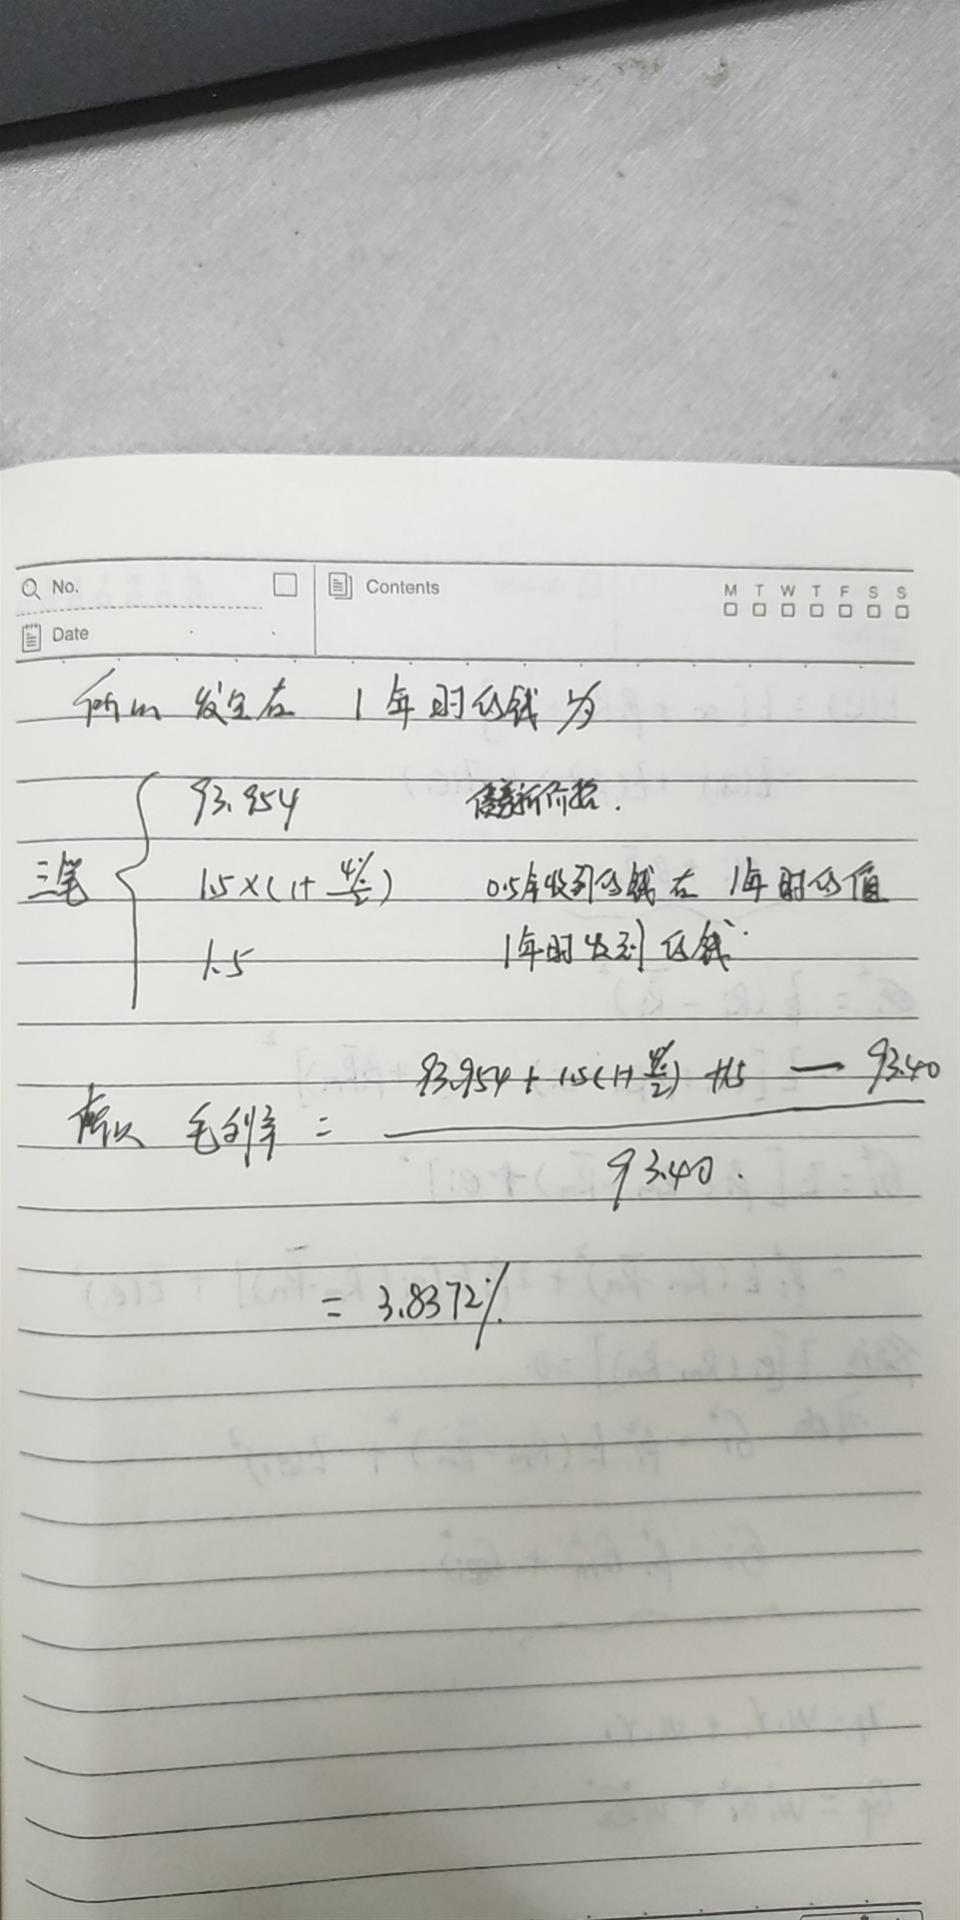 No.
Contents
M T W T F S S
Date
所以 发生在 1年时的钱为
三笔
93.954 债券新价格.
1.5×(1+4%/2) 0.5年收到的钱在1年时的价值
1.5 1年时收到的钱.
所以 毛利率 = (93.954+1.5(1+4%/2)+1.5 — 93.40) / 93.40.
= 3.8372%